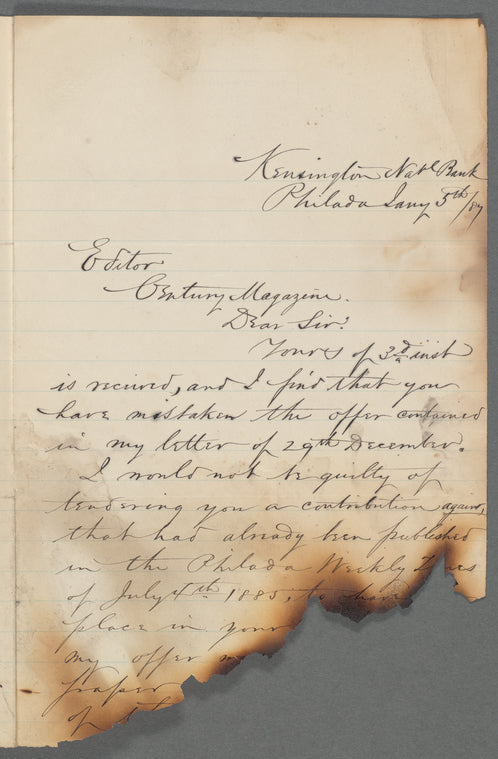 Kensington Natl Bank
Philada Jany 5th/87
Editor
Century Magazine.
Dear Sir:
Yours of 3d inst
is received, and I find that you
have mistaken the offer contained
in my letter of 29th December.
I would not be guilty of
tendering you a contribution again,
that had already been published
in the Philada Weekly Times
of July 4th 1885, to have
place in your
my offer
paper
of